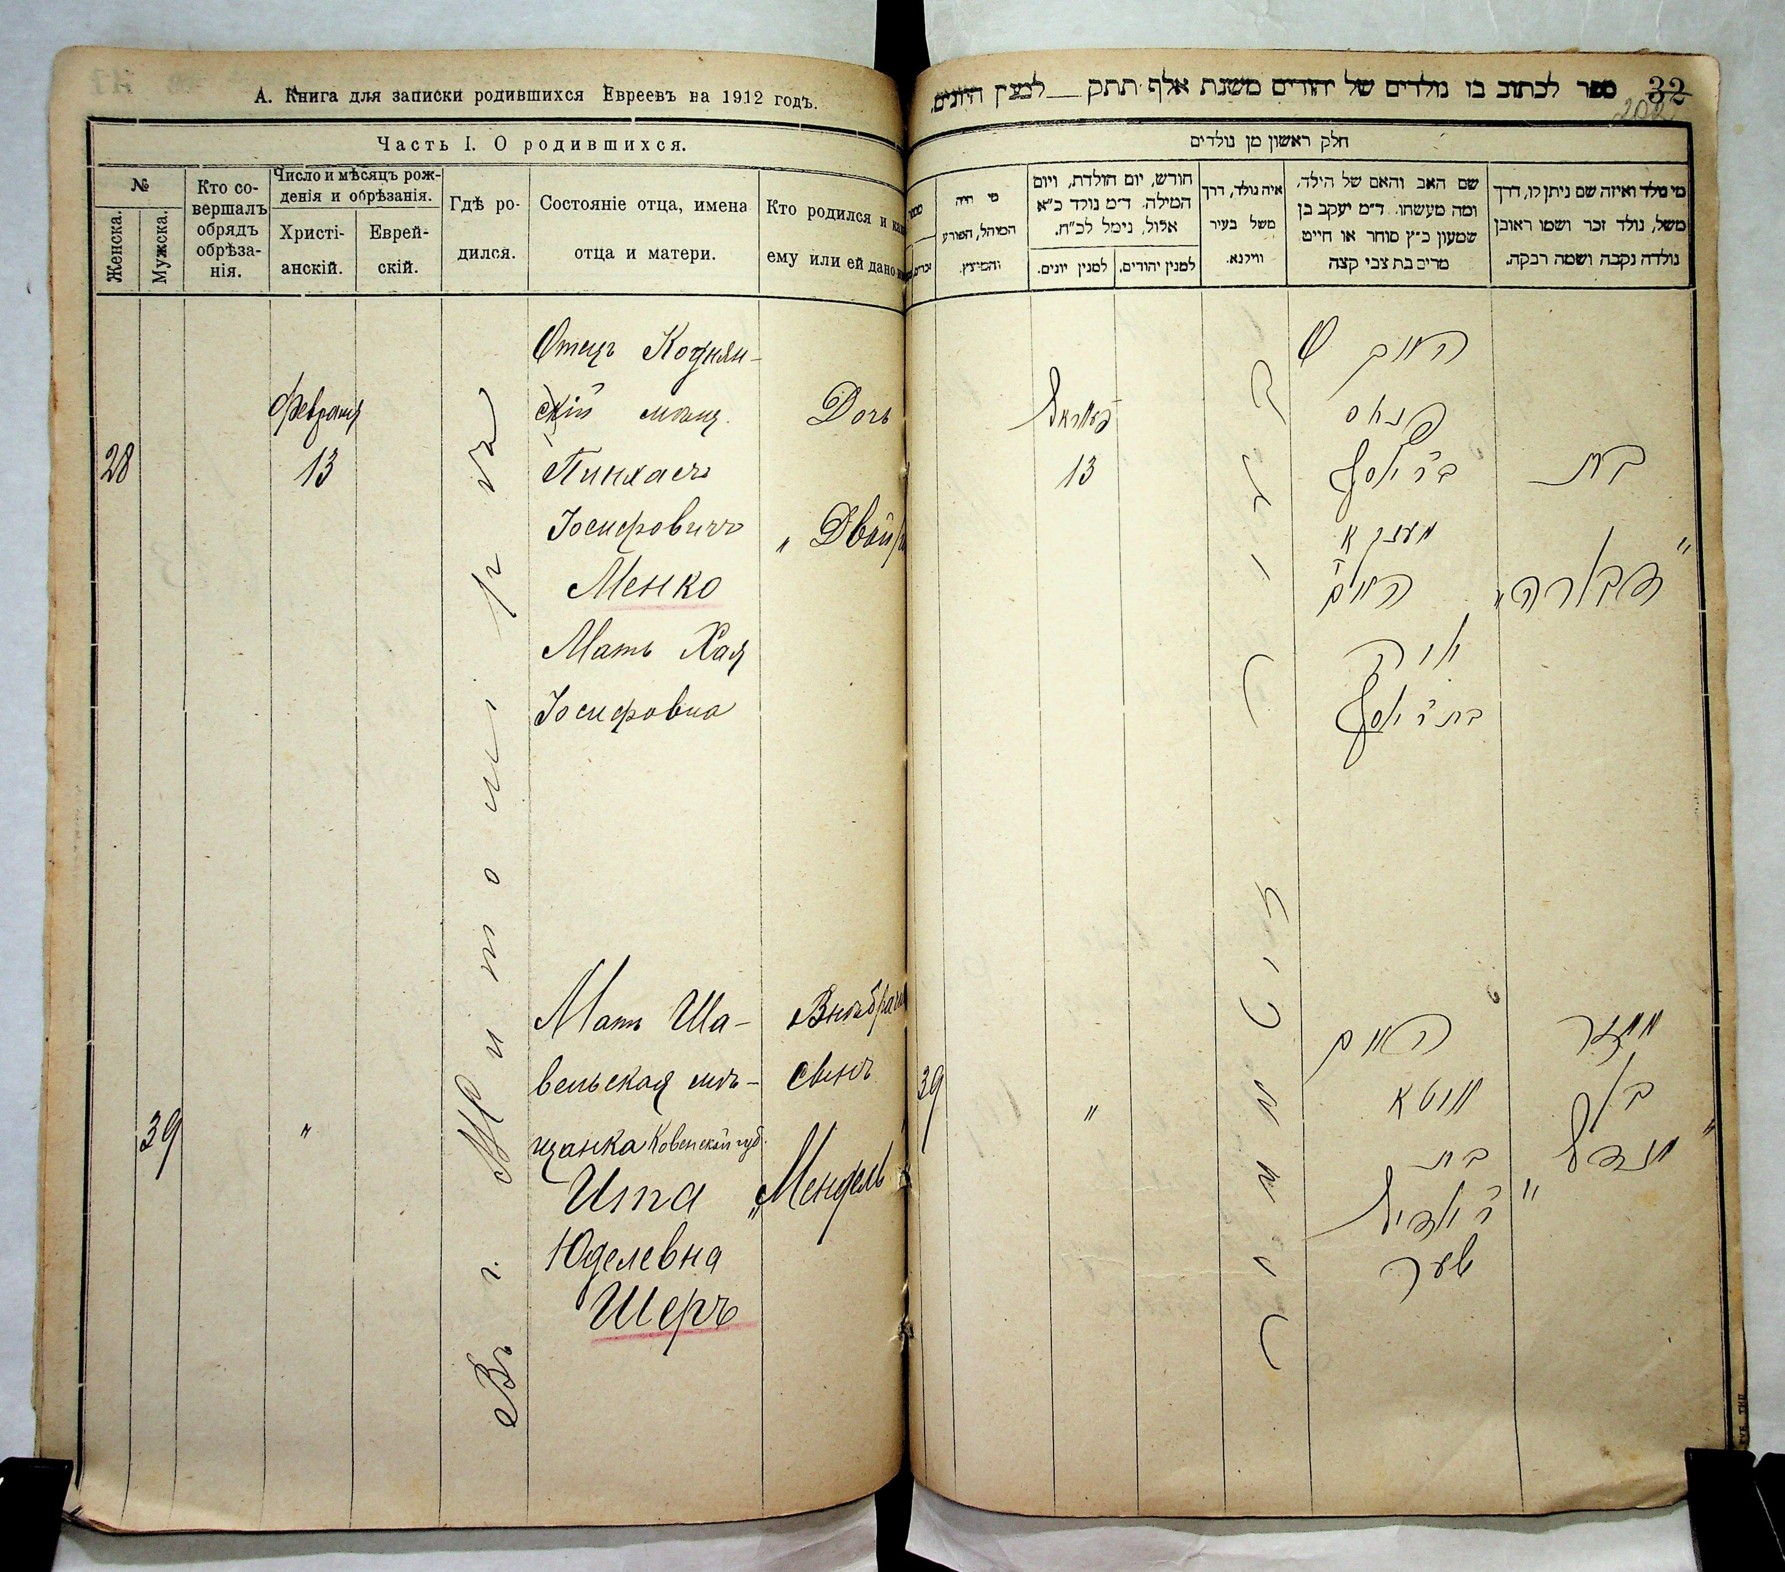 А. Книга для записки родившихся Евреевъ на 1912 годъ.
Часть I. О родившихся.
№
Женска.
Мужска.
Кто со-
вершалъ
обрядъ
обрѣза-
нія.
Число и мѣсяцъ рож-
денія и обрѣзанія.
Христі-
анскій.
Еврей-
скій.
Гдѣ ро-
дился.
Состояніе отца, имена
отца и матери.
Кто родился и как
ему или ей дано
28
Февраля
13
Въ г. Житомірѣ
Отецъ
скій мѣщ.
Пинхасъ
Іосифовичъ
Менко
Мать Хая
Іосифовна
Дочь
„ Двойра
39
"
Мать Ша-
вельская мѣ-
щанка Ковенской губ.
Ита
Юделевна
Шеръ
Внѣбрачн
сынъ
„Мендель
32
202
ספר לכתוב בו נולדים של יהודים משנת אלף תתק __ למנין היונים.
חלק ראשון מן נולדים
מי נולד ואיזה שם ניתן לו, דרך
משל, נולד זכר ושמו ראובן
נולדה נקבה ושמה רבקה.
שם האב והאם של הילד,
ומה מעשהו. ד״מ יעקב בן
שמעון כ״ץ סוחר או חייט
מרים בת צבי קצה
איה נולד, דרך
משל בעיר
ווילנא.
חורש, יום הולדת, ויום
המילה. ד״מ נולד כ״א
אלול, נימל לכ״ח.
למנין יהודים.
למנין יונים.
מי היה
המוהל, הפורע
והמוצץ.
מספר
זכרים
בת
"דבורה"
האב
פנחס
ב״ר יוסף
מענקא
האם
חיה
בת ר׳ יוסף
פעווראל
13
זיטאמיר
ממזר
בן
"מענדל"
האם
איטא
בת
ר׳ יודיל
שער
"
39